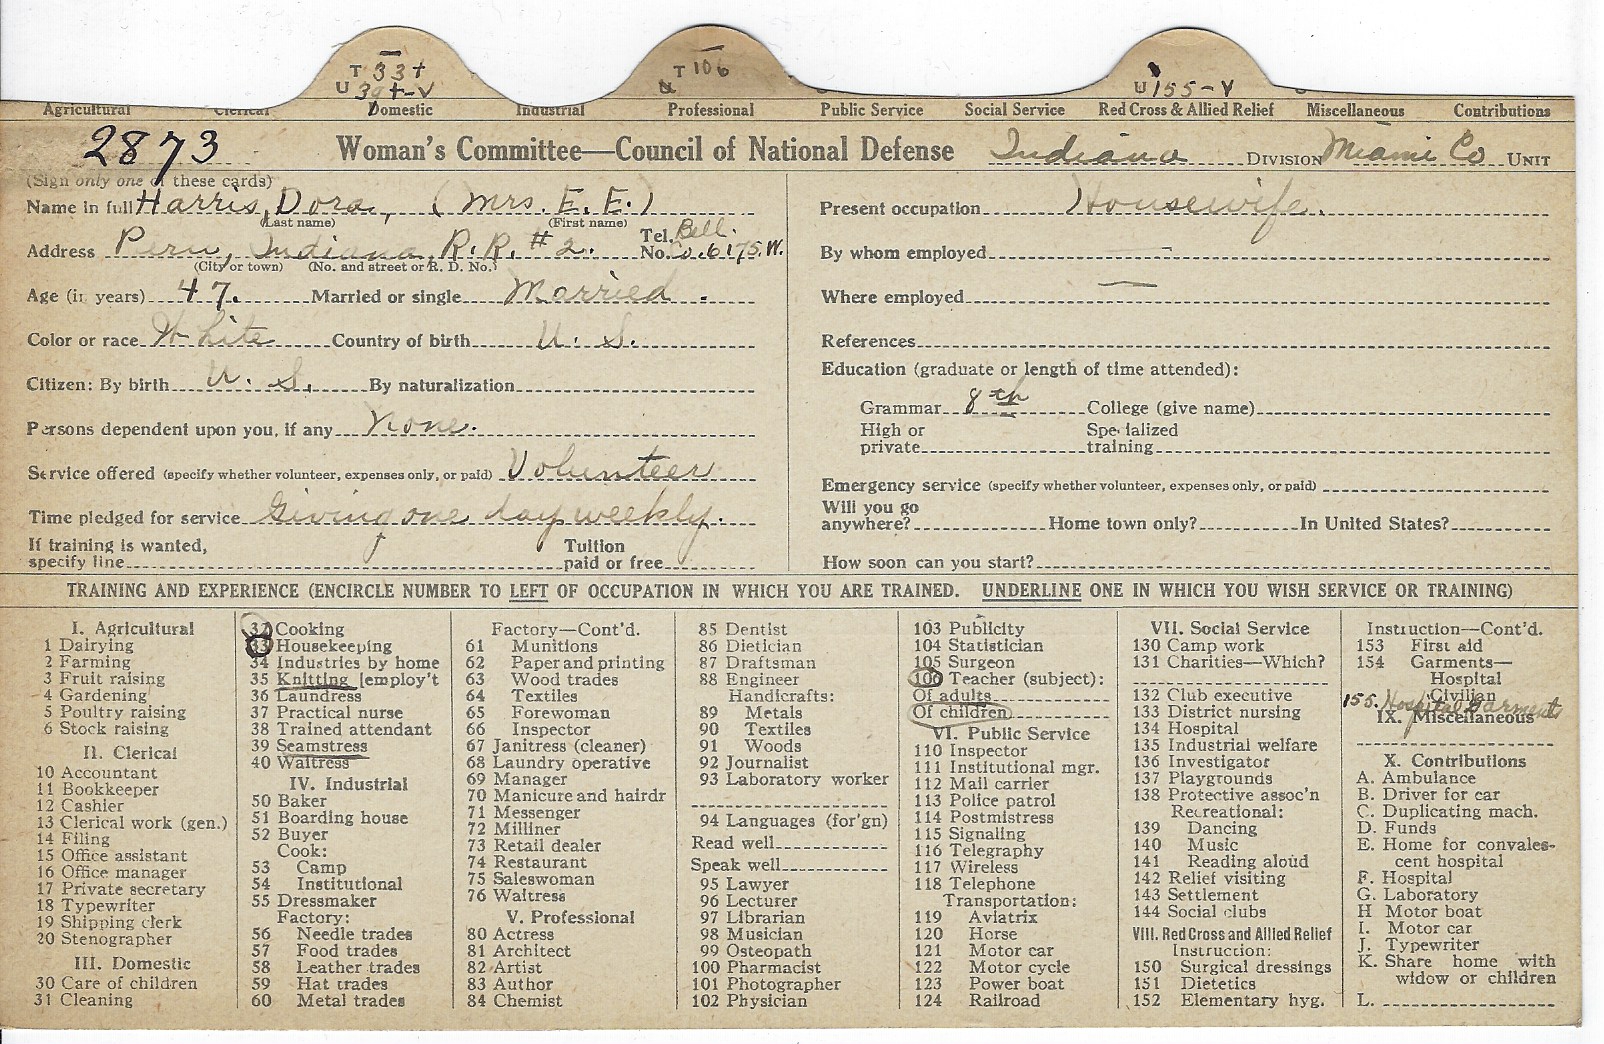 T 33+
U 39+-V
T 106
U
U 155-V
Agricultural Clerical Domestic Industrial Professional Public Service Social Service Red Cross & Allied Relief Miscellaneous Contributions
2873 Woman's Committee—Council of National Defense Indiana DIVISION Miami Co UNIT
(Sign only one of these cards)
Name in full Harris, Dora, (Mrs. E. E.)
(Last name) (First name)
Address Peru, Indiana, R. R. #2. Tel. No. Bell. Co. 6175. W.
(City or town) (No. and street or R. D. No.)
Age (in years) 47. Married or single Married.
Color or race White Country of birth U. S.
Citizen: By birth U. S. By naturalization
Persons dependent upon you, if any None.
Service offered (specify whether volunteer, expenses only, or paid) Volunteer
Time pledged for service Giving one day weekly.
If training is wanted, specify line Tuition paid or free
Present occupation Housewife.
By whom employed —
Where employed —
References
Education (graduate or length of time attended):
Grammar 8th College (give name)
High or private Specialized training
Emergency service (specify whether volunteer, expenses only, or paid)
Will you go anywhere? Home town only? In United States?
How soon can you start?
TRAINING AND EXPERIENCE (ENCIRCLE NUMBER TO LEFT OF OCCUPATION IN WHICH YOU ARE TRAINED. UNDERLINE ONE IN WHICH YOU WISH SERVICE OR TRAINING)
I. Agricultural
1 Dairying
2 Farming
3 Fruit raising
4 Gardening
5 Poultry raising
6 Stock raising
II. Clerical
10 Accountant
11 Bookkeeper
12 Cashier
13 Clerical work (gen.)
14 Filing
15 Office assistant
16 Office manager
17 Private secretary
18 Typewriter
19 Shipping clerk
20 Stenographer
III. Domestic
30 Care of children
31 Cleaning
32 Cooking
33 Housekeeping
34 Industries by home
35 Knitting [employ't
36 Laundress
37 Practical nurse
38 Trained attendant
39 Seamstress
40 Waitress
IV. Industrial
50 Baker
51 Boarding house
52 Buyer
Cook:
53 Camp
54 Institutional
55 Dressmaker
Factory:
56 Needle trades
57 Food trades
58 Leather trades
59 Hat trades
60 Metal trades
Factory—Cont'd.
61 Munitions
62 Paper and printing
63 Wood trades
64 Textiles
65 Forewoman
66 Inspector
67 Janitress (cleaner)
68 Laundry operative
69 Manager
70 Manicure and hairdr
71 Messenger
72 Milliner
73 Retail dealer
74 Restaurant
75 Saleswoman
76 Waitress
V. Professional
80 Actress
81 Architect
82 Artist
83 Author
84 Chemist
85 Dentist
86 Dietician
87 Draftsman
88 Engineer
Handicrafts:
89 Metals
90 Textiles
91 Woods
92 Journalist
93 Laboratory worker
94 Languages (for'gn)
Read well
Speak well
95 Lawyer
96 Lecturer
97 Librarian
98 Musician
99 Osteopath
100 Pharmacist
101 Photographer
102 Physician
103 Publicity
104 Statistician
105 Surgeon
106 Teacher (subject):
Of adults
Of children
VI. Public Service
110 Inspector
111 Institutional mgr.
112 Mail carrier
113 Police patrol
114 Postmistress
115 Signaling
116 Telegraphy
117 Wireless
118 Telephone
Transportation:
119 Aviatrix
120 Horse
121 Motor car
122 Motor cycle
123 Power boat
124 Railroad
VII. Social Service
130 Camp work
131 Charities—Which?
132 Club executive
133 District nursing
134 Hospital
135 Industrial welfare
136 Investigator
137 Playgrounds
138 Protective assoc'n
Recreational:
139 Dancing
140 Music
141 Reading aloud
142 Relief visiting
143 Settlement
144 Social clubs
VIII. Red Cross and Allied Relief
Instruction:
150 Surgical dressings
151 Dietetics
152 Elementary hyg.
Instruction—Cont'd.
153 First aid
154 Garments—
Hospital
Civilian
155. Hospital Garments
IX. Miscellaneous
X. Contributions
A. Ambulance
B. Driver for car
C. Duplicating mach.
D. Funds
E. Home for convales-
cent hospital
F. Hospital
G. Laboratory
H Motor boat
I. Motor car
J. Typewriter
K. Share home with
widow or children
L.